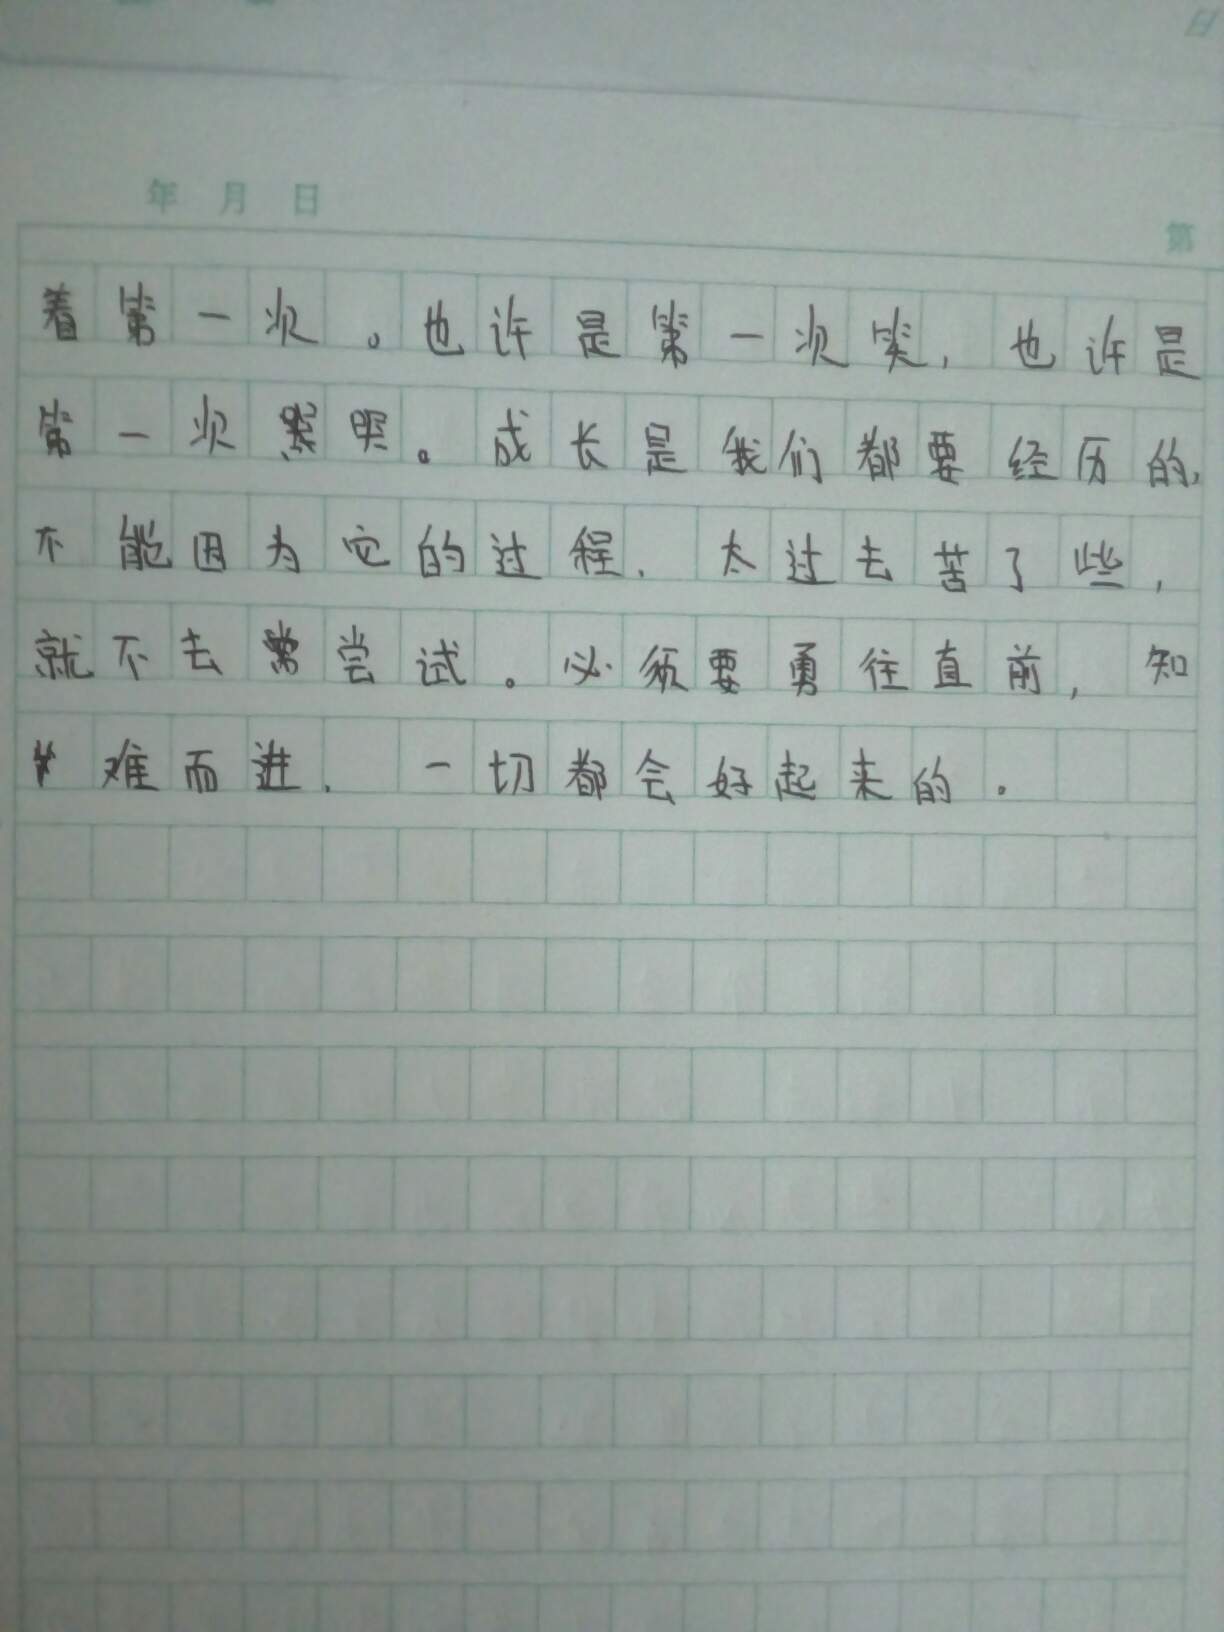 日
年 月 日
第
着第一次。也许是第一次笑，也许是
第一次哭。成长是我们都要经历的，
不能因为它的过程，太过去苦了些，
就不去尝试。必须要勇往直前，知
难而进，一切都会好起来的。